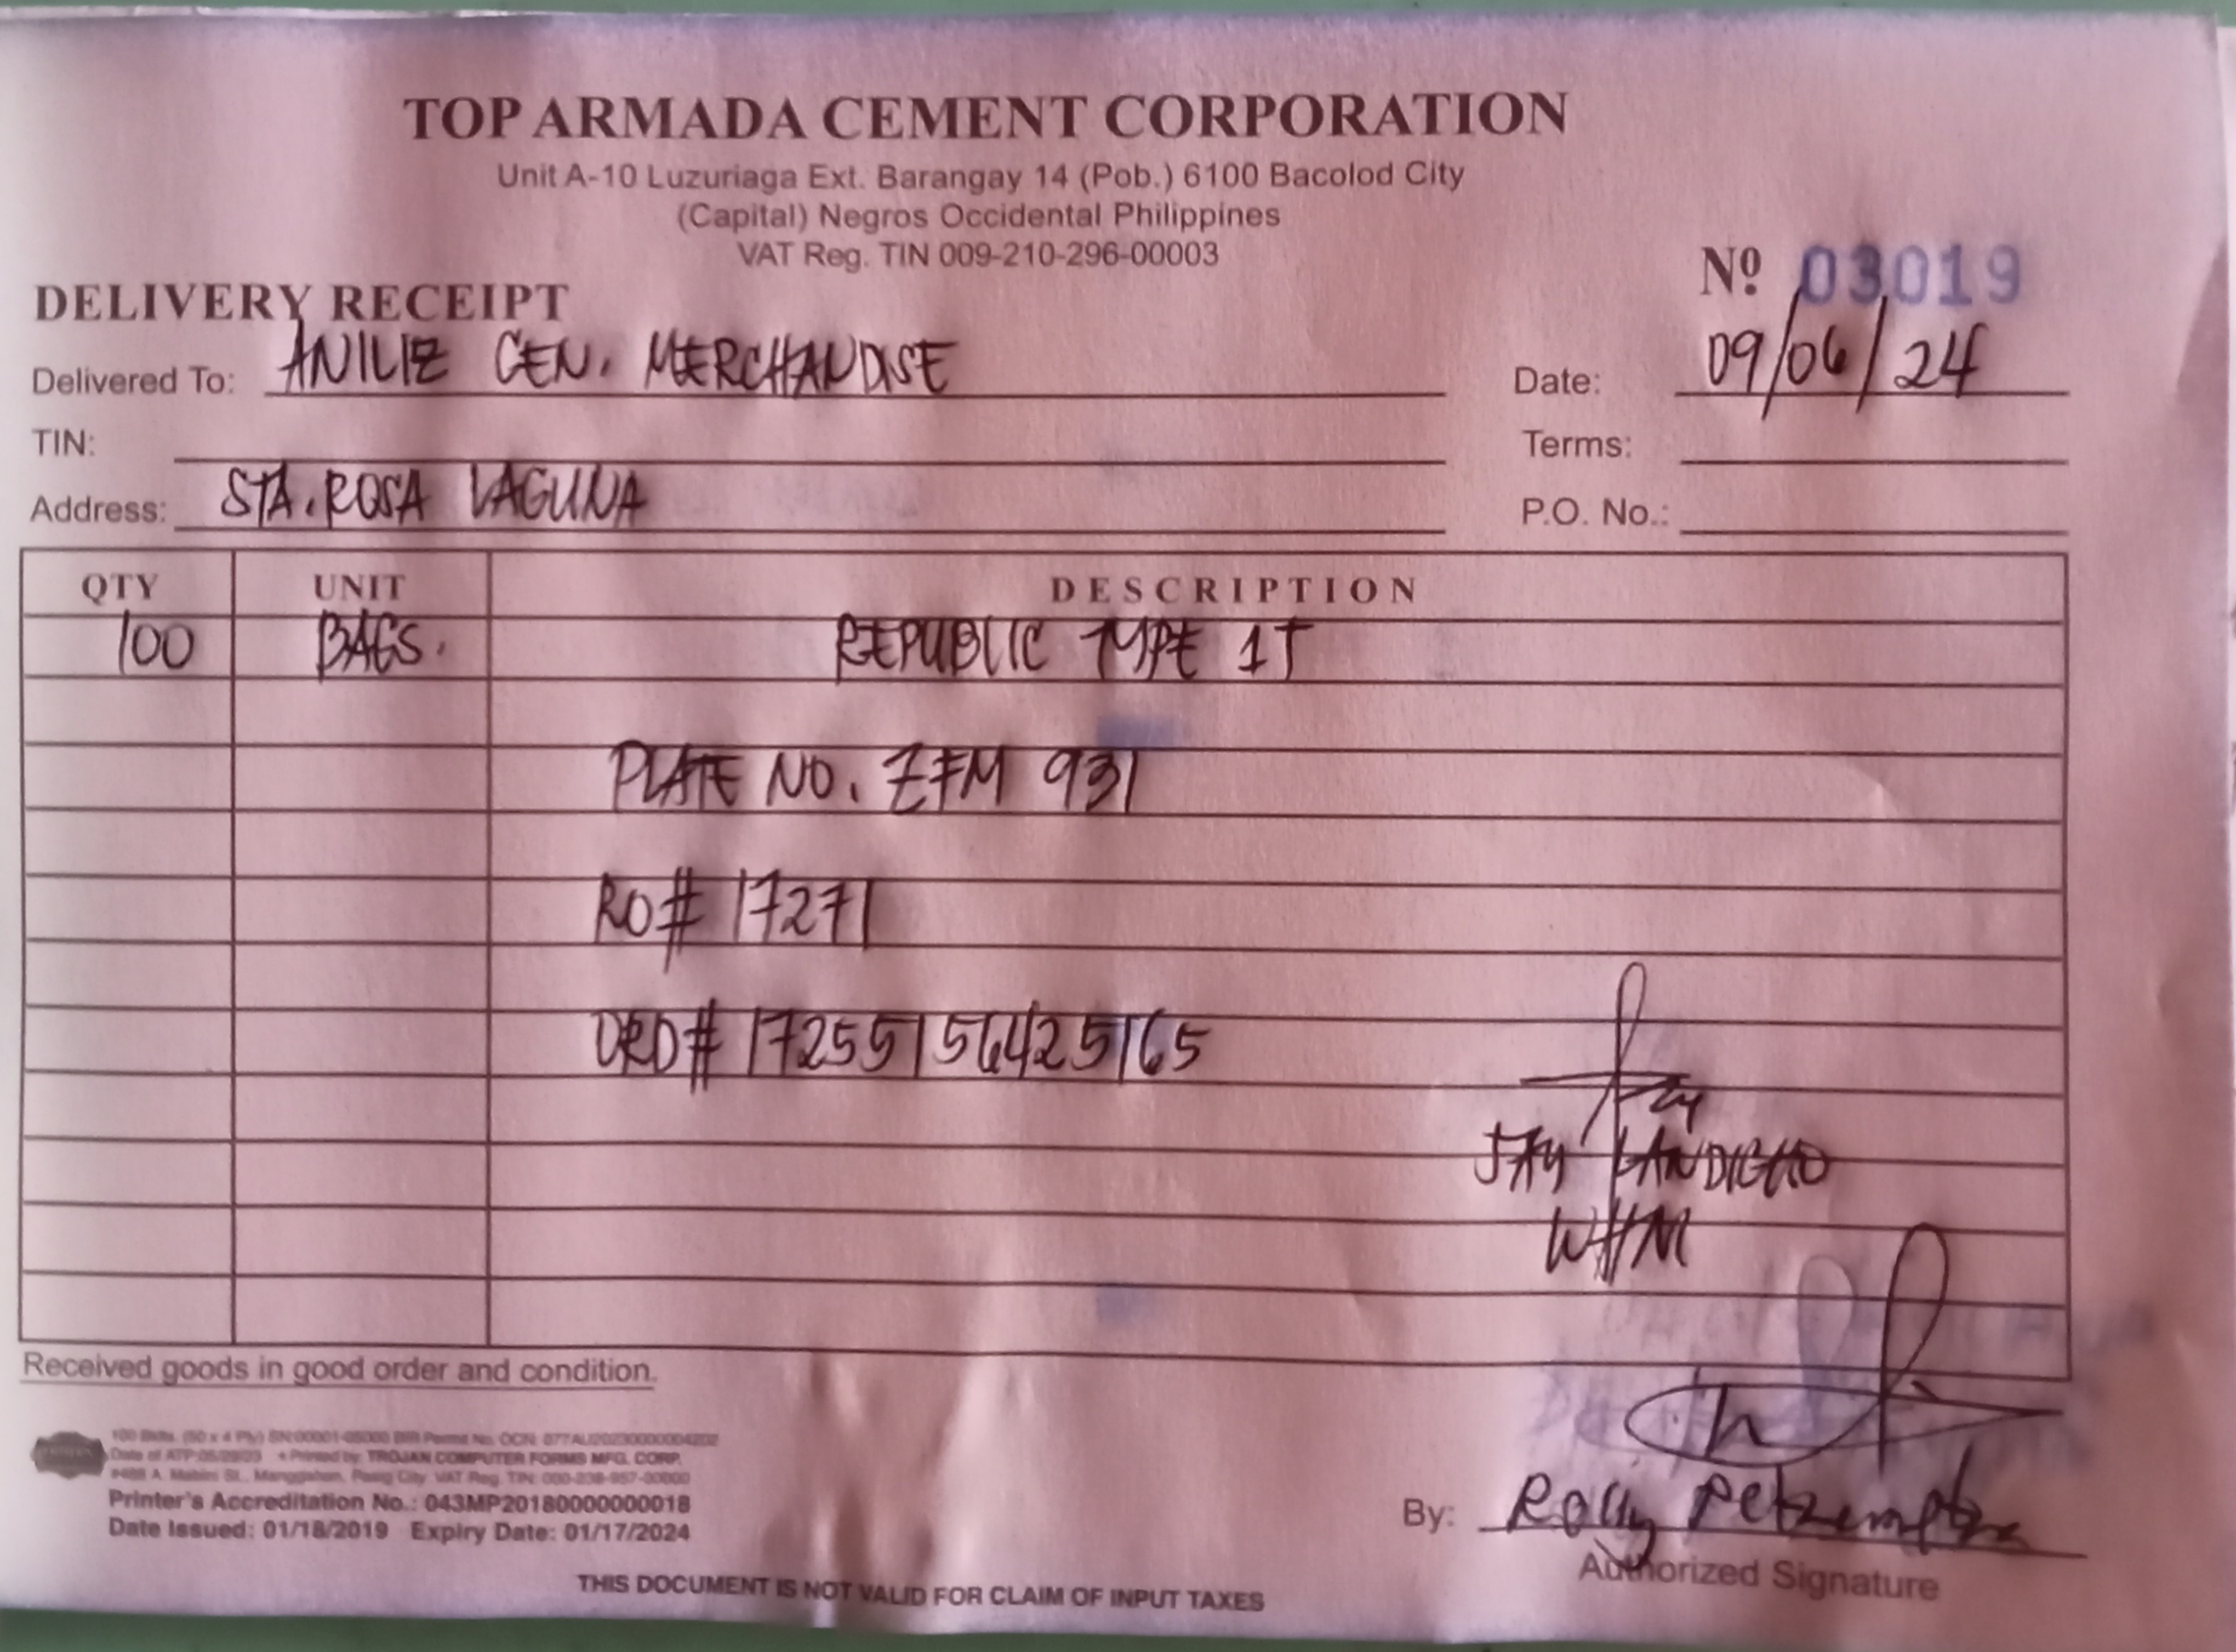 TOP ARMADA CEMENT CORPORATION
Unit A-10 Luzuriaga Ext. Barangay 14 (Pob.) 6100 Bacolod City
(Capital) Negros Occidental Philippines
VAT Reg. TIN 009-210-296-00003
Nº 03019
DELIVERY RECEIPT
Delivered To: ANILIZ GEN. MERCHANDISE
Date: 09/06/24
TIN:
Terms:
Address: STA. ROSA LAGUNA
P.O. No.:
QTY UNIT DESCRIPTION
100 BAGS. REPUBLIC TYPE 1T
PLATE NO. ZFM 931
RO# 17271
ORD# 17255156425165
JAY LANDICHO
WHM
Received goods in good order and condition.
100 Bklts. (50 x 4 Ply) SN:00001-05000 BIR Permit No. OCN:
Date of ATP:05/29/23 • Printed by: TROJAN COMPUTER FORMS MFG. CORP.
A. Mabini St., Manggahan, Pasig City VAT Reg. TIN:
Printer's Accreditation No.: 043MP20180000000018
Date Issued: 01/18/2019 Expiry Date: 01/17/2024
By: Rolly
Authorized Signature
THIS DOCUMENT IS NOT VALID FOR CLAIM OF INPUT TAXES